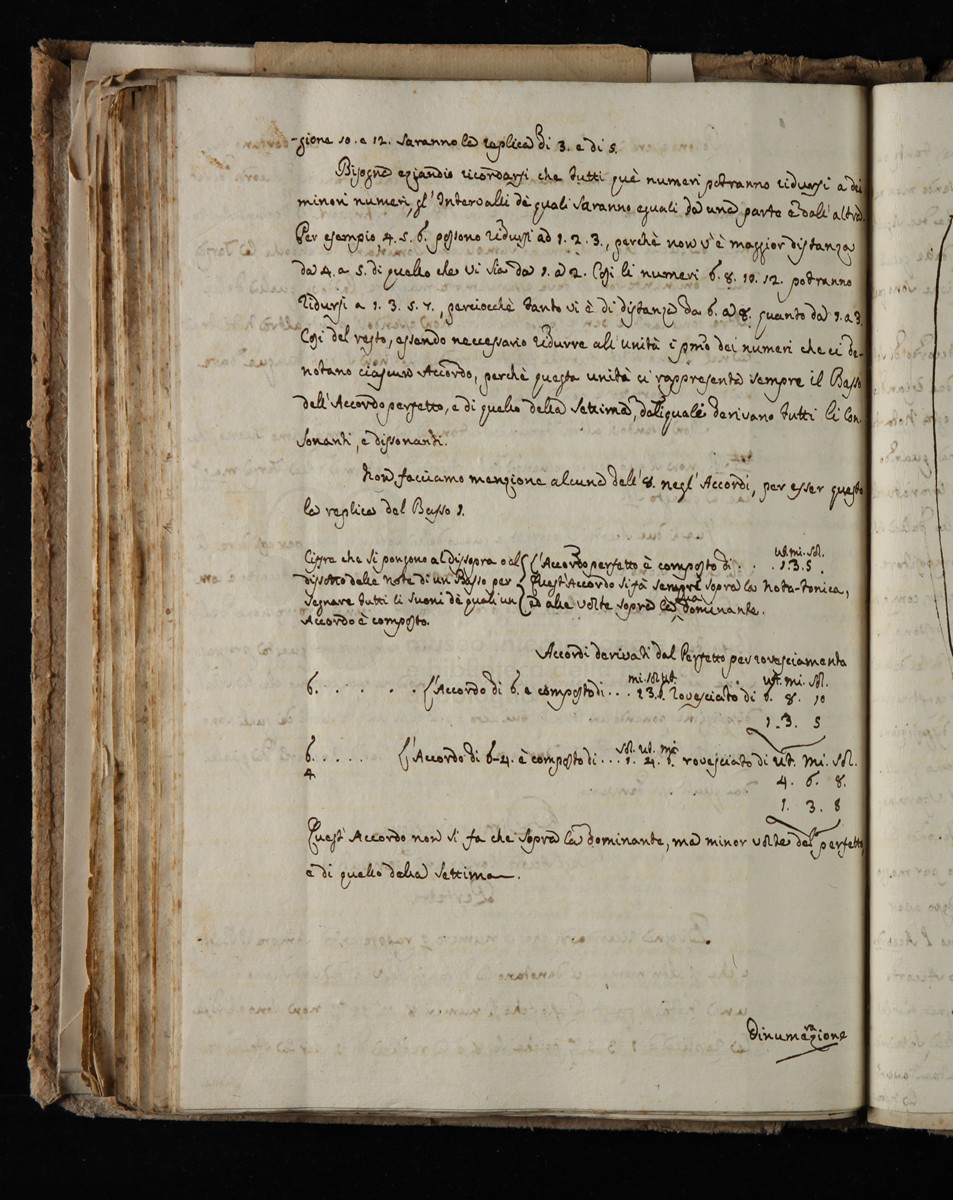 -zione 10. e 12. saranno la replica di 3. e di 5.
Bisogna eziandio ricordarsi che tutti què numeri potranno ridursi a dei
minori numeri, gl'Intervalli dè quali saranno eguali da una parte e dall'altra.
Per esempio, 4. 5. 6. possono ridursi ad 1. 2. 3., perchè non v'è maggior distanza
da 4. a 5. di quello che vi sia da 1. a 2. Così li numeri 6. 8. 10. 12. potranno
ridursi a 1. 3. 5. 7., perciocchè tanto vi è di distanza da 6. a 8. quanto da 1. a 3.
Così del resto, essendo necessario ridurre all'unità i pmo dei numeri che ci de-
notano ciascuno Accordo, perchè questa unità ci rappresenta sempre il Basso
dell'Accordo perfetto, e di quello della Settima, dalli quali derivano tutti li Con
sonanti, e dissonanti.
Non facciamo menzione alcuna dell'8. negl'Accordi, per esser questa
la replica del Basso 1.
ut. mi. sol.
Cifra che si pongono al dissopra o al L'Accordo perfetto è composto di . . . 1. 3. 5.
dissotto delle note di un Basso per Quest'Accordo si fà sempre sopra la Nota-tonica,
segnare tutti li suoni dè quali un ed alle volte sopra la sua dominante.
Accordo è composto.
Accordi derivati dal Perfetto per rovesciamento
mi. sol. ut. ut. mi. sol.
6. . . . . . . L'Accordo di 6. e composto di . . . 1. 3. 6. rovesciato di 6. 8. 10
1. 3. 5
sol. ut. mi.
6. . . . . L'Accordo di 6-4. è composto di . . . 1. 4. 6. rovesciato di ut. mi. sol.
4
4. 6. 8.
1. 3. 8
Quest'Accordo non si fa che sopra la dominante, ma minor volte del perfetto,
e di quello della settima.
Dinumerazione